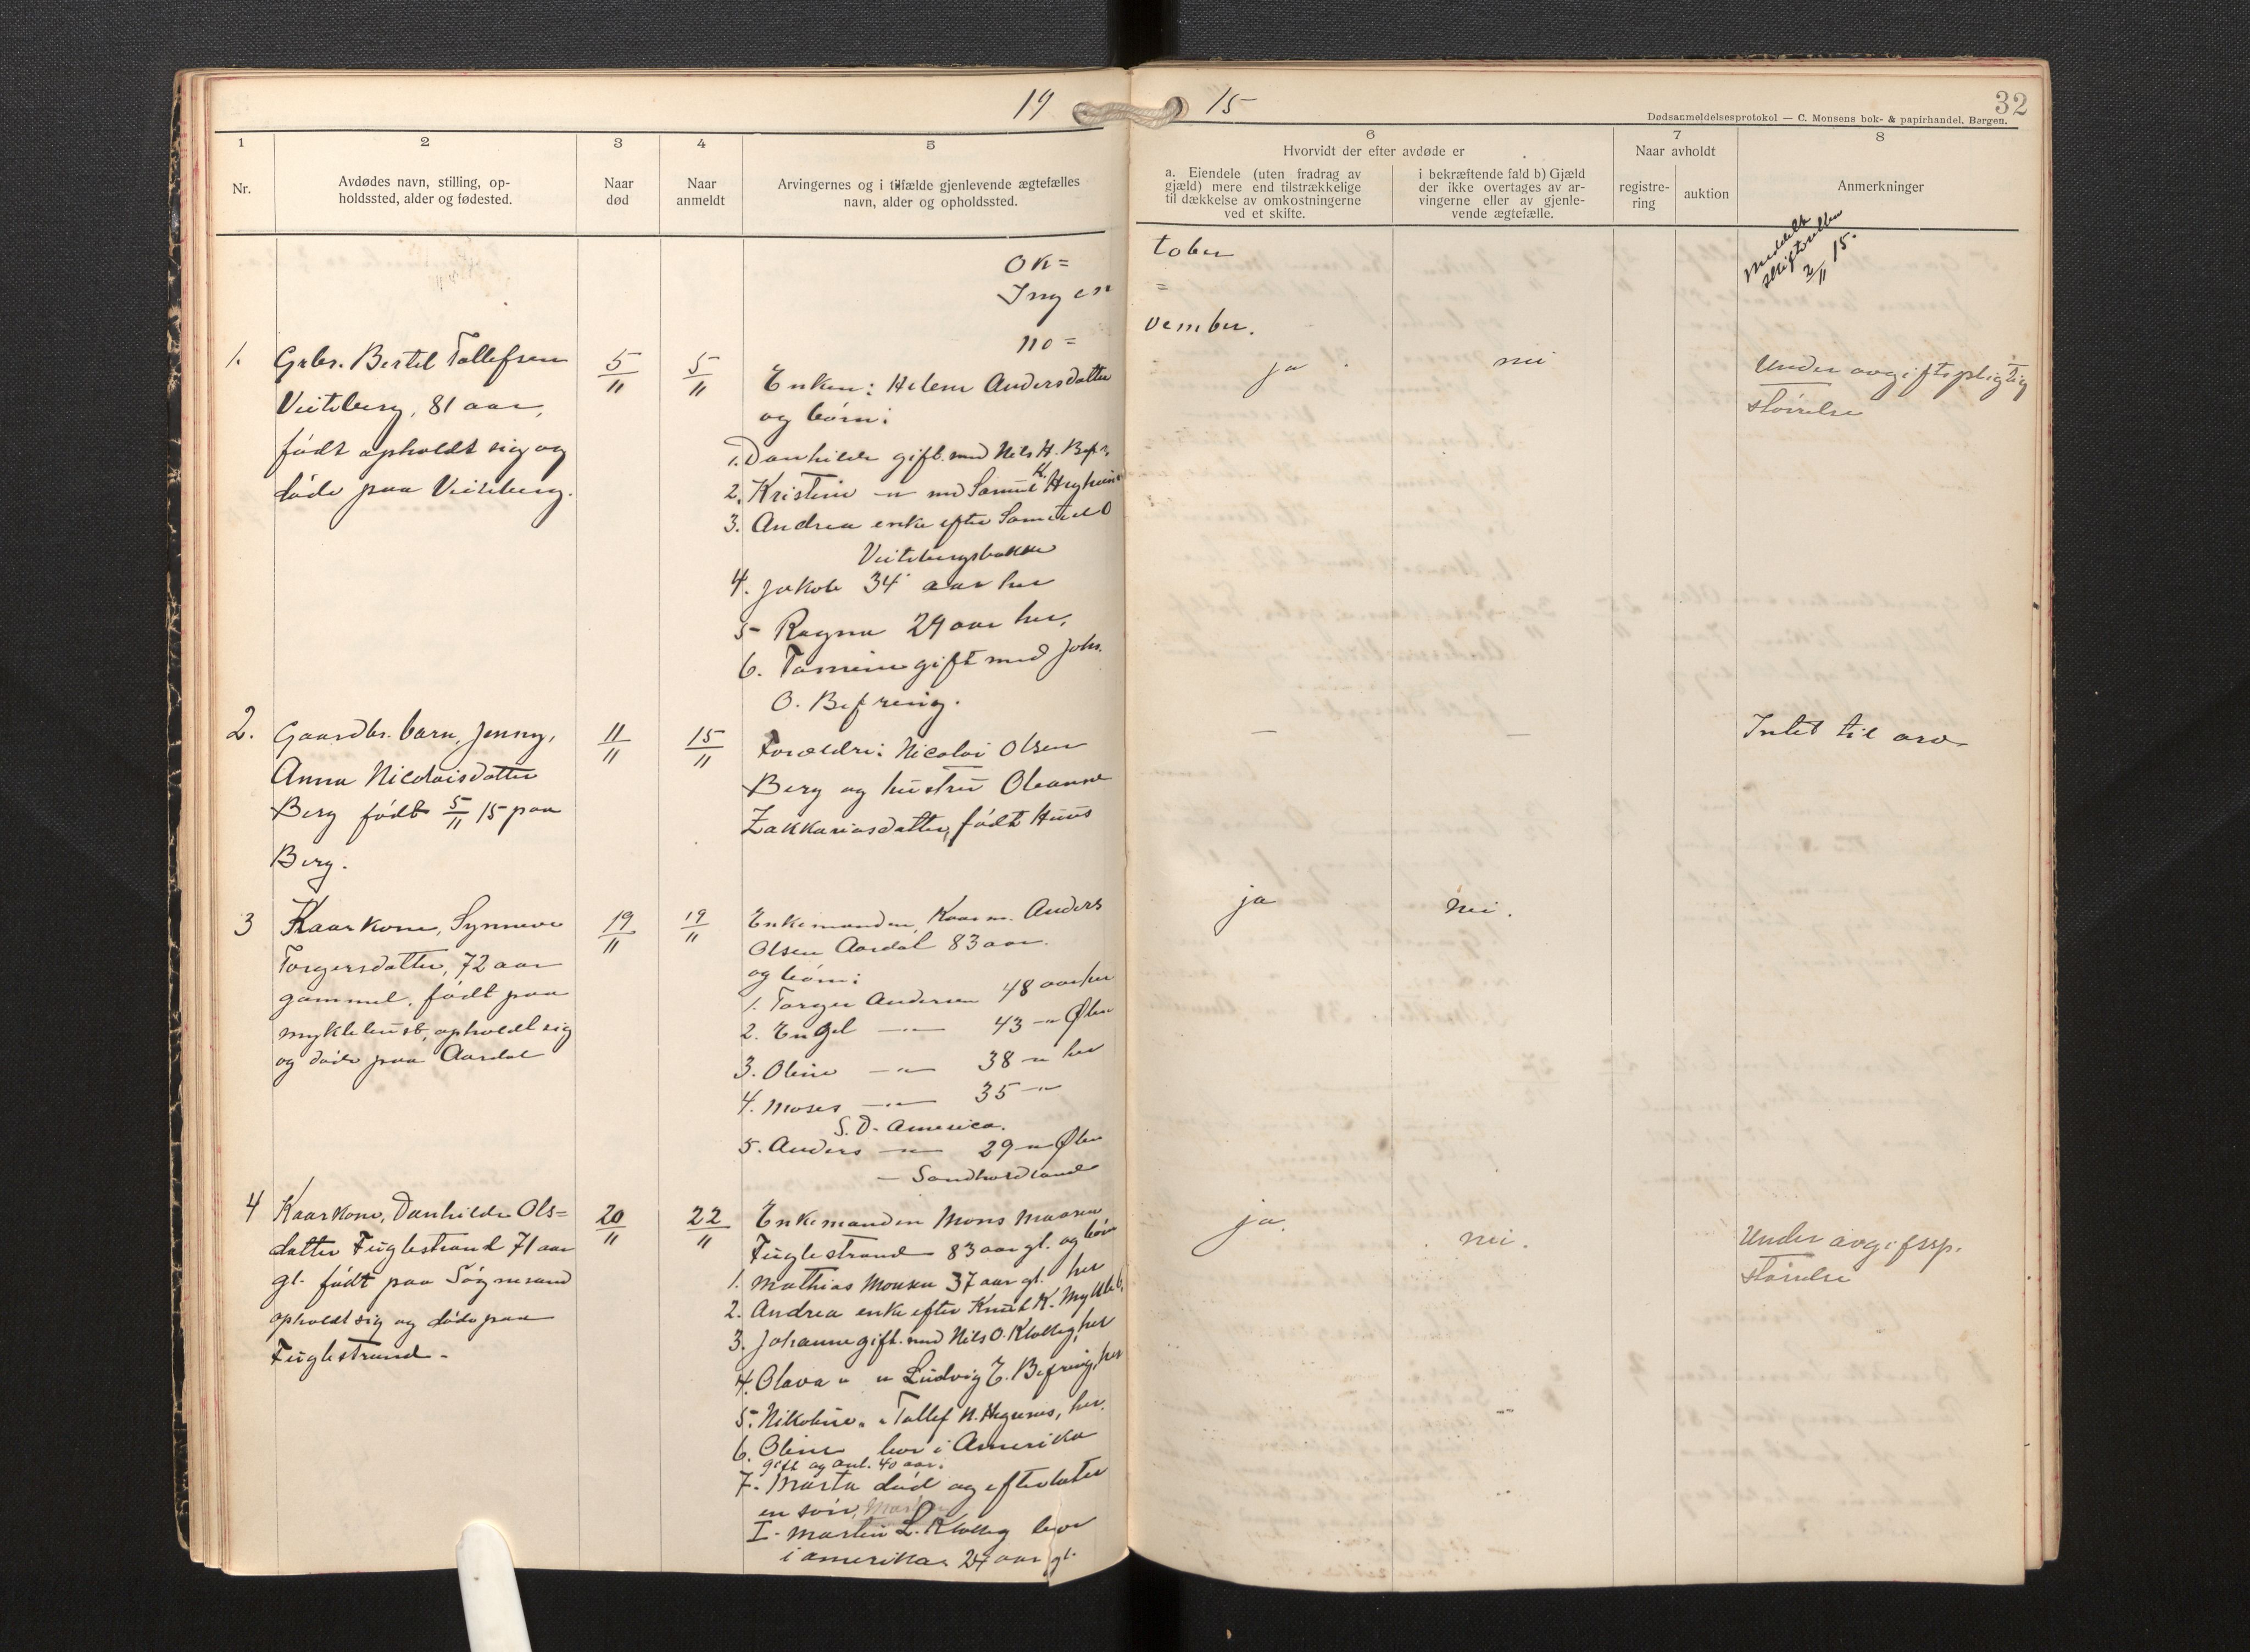 19 15
32
Dødsanmeldelsesprotokol — C. Monsens bok- & papirhandel, Bergen.
1 2 3 4 5 6 7 8
Nr.
Avdødes navn, stilling, op-
holdssted, alder og fødested.
Naar
død
Naar
anmeldt
Arvingernes og i tilfælde gjenlevende ægtefælles
navn, alder og opholdssted.
Hvorvidt der efter avdøde er
a. Eiendele (uten fradrag av
gjæld) mere end tilstrækkelige
til dækkelse av omkostningerne
ved et skifte.
i bekræftende fald b) Gjæld
der ikke overtages av ar-
vingerne eller av gjenle-
vende ægtefælle.
Naar avholdt
registre-
ring
auktion
Anmerkninger
Ok= tober
Ingen =
no= vember.
Meddelt
2/11 15.
1.
Grbr. Bertel Tollefsen
Veiteberg, 81 aar,
født opholdt sig og
døde paa Veiteberg.
5/11
5/11
Enken: Helene Andersdatter
og børn:
1. Danhilde gift med Nils H. Befr.
2. Kristine -"- med Samuel K. Hegheim
3. Andrea enke efter Samuel O
Veitebergsbakke
4. Jakob 34 aar her
5- Ragna 29 aar her,
6. Tomine gift med Johs.
O. Befring.
ja
nei
Under avgiftspligtig
størrelse
2.
Gaardbr. barn, Jenny,
Anna Nicolaisdatter
Berg født 5/11 15 paa
Berg.
11/11
15/11
Forældre: Nicolai Olsen
Berg og hustru Oleanne
Zakkariasdatter, født Huus
—
—
Intet til arv
3
Kaarkone, Synneve
Torgersdatter, 72 aar
gammel, født paa
Myklebust, opholdt sig
og døde paa Aardal
19/11
19/11
Enkemanden, Kaarm. Anders
Olsen Aardal 83 aar.
og børn:
1. Torger Andersen 48 aar her
2. Engel -"- 43 -"- Ølen
3. Oline -"- 38 -"- her
4. Moses -"- 35 -"-
S.D. America.
5. Anders -"- 29 -"- Ølen
— Søndhordland
ja
nei.
4
Kaarkone, Danhilde Ols=
datter Fuglestrand 71 aar
gl. født paa Søgnesand
opholdt sig og døde paa
Fuglestrand.
20/11
22/11
Enkemanden Mons Monsen
Fuglestrand 83 aar gl. og børn
1. Mathias Monsen 37 aar gl. her
2. Andrea enke efter Knut K. Mykleb.
3. Johanne gift med Nils O. Kløveg, her
4. Olava " " Ludvig E. Befring, her
5. Nikoline " " Tollef N. Hegrenes, her.
6. Oline bor i Amerika
gift og ant. 40 aar.
7. Marta død og efterlater
en søn,
I- Martin L. Kløveg bor
i Amerika 24 aar gl.
ja.
nei.
Under avgifsp.
størrelse